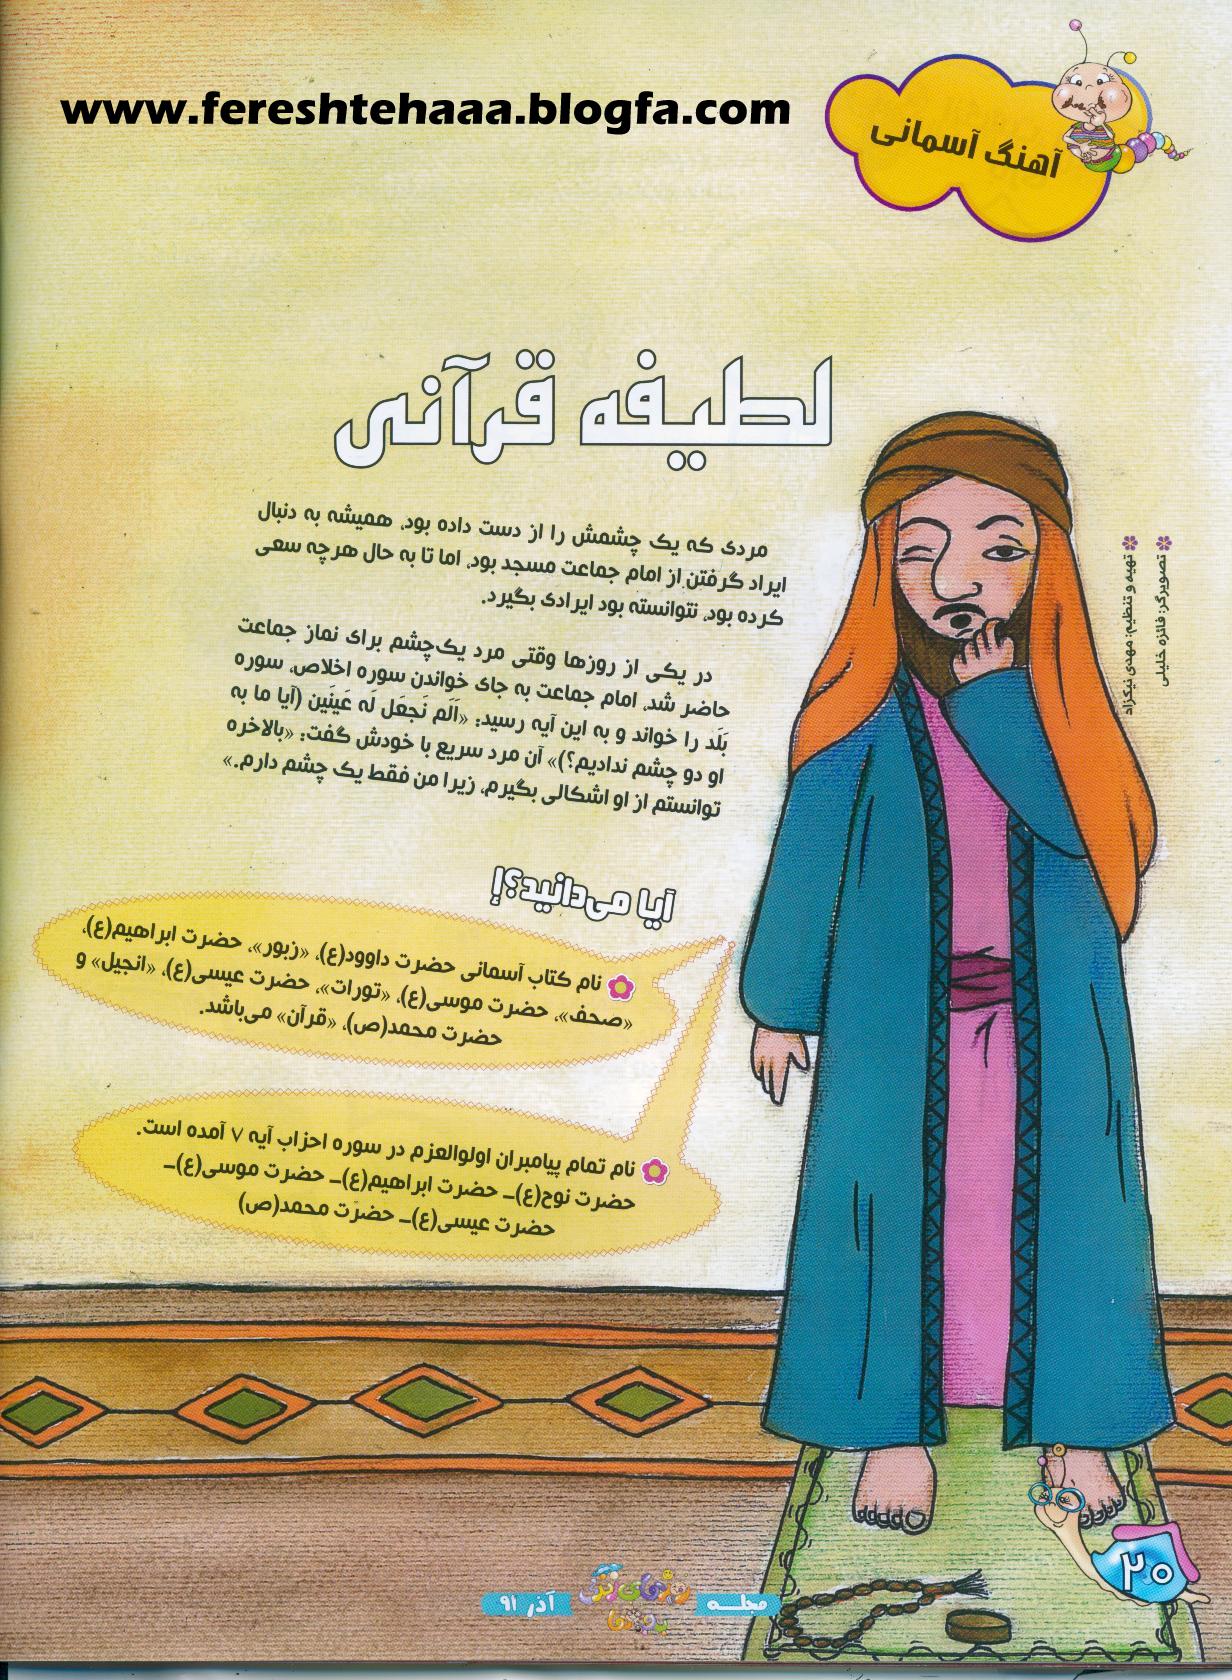 www.fereshtehaaa.blogfa.com
آهنگ آسمانی
لطیفه قرآنی
مردی که یک چشمش را از دست داده بود، همیشه به دنبال
ایراد گرفتن از امام جماعت مسجد بود، اما تا به حال هر چه سعی
کرده بود، نتوانسته بود ایرادی بگیرد.
در یکی از روزها وقتی مرد یک‌چشم برای نماز جماعت
حاضر شد، امام جماعت به جای خواندن سوره اخلاص، سوره
بَلَد را خواند و به این آیه رسید: «اَلَم نَجعَل لَه عَینَین (آیا ما به
او دو چشم ندادیم؟)» آن مرد سریع با خودش گفت: «بالاخره
توانستم از او اشکالی بگیرم، زیرا من فقط یک چشم دارم.»
تهیه و تنظیم: مهدی نیکزاد
تصویرگر: فائزه خلیلی
آیا می‌دانید؟!
نام کتاب آسمانی حضرت داوود(ع)، «زبور»، حضرت ابراهیم(ع)،
«صحف»، حضرت موسی(ع)، «تورات»، حضرت عیسی(ع)، «انجیل» و
حضرت محمد(ص)، «قرآن» می‌باشد.
نام تمام پیامبران اولوالعزم در سوره احزاب آیه ۷ آمده است.
حضرت نوح(ع)- حضرت ابراهیم(ع)- حضرت موسی(ع)-
حضرت عیسی(ع)- حضرت محمد(ص)
۲۰
مجله
آذر ۹۱